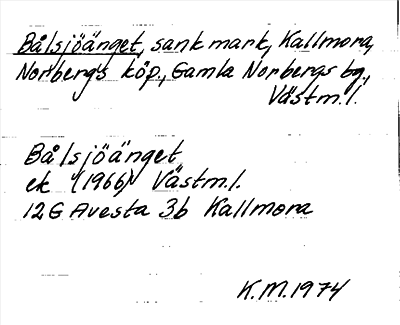 Bålsjöänget, sank mark, Kallmora,
Norbergs köp., Gamla Norbergs bg.,
Västm.l.
Bålsjöänget
ek (1966) Västm.l.
12G Avesta 3b Kallmora
K.M.1974